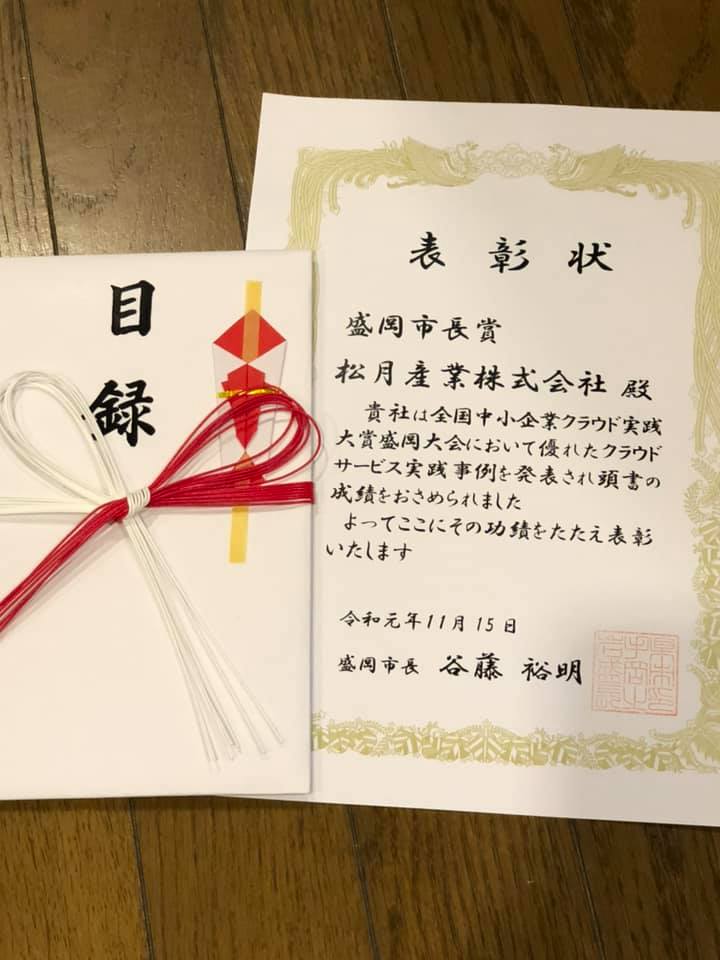 目録
表彰状
盛岡市長賞
松月産業株式会社 殿
貴社は全国中小企業クラウド実践
大賞盛岡大会において優れたクラウド
サービス実践事例を発表され頭書の
成績をおさめられました
よってここにその功績をたたえ表彰
いたします
令和元年11月15日
盛岡市長 谷藤 裕明